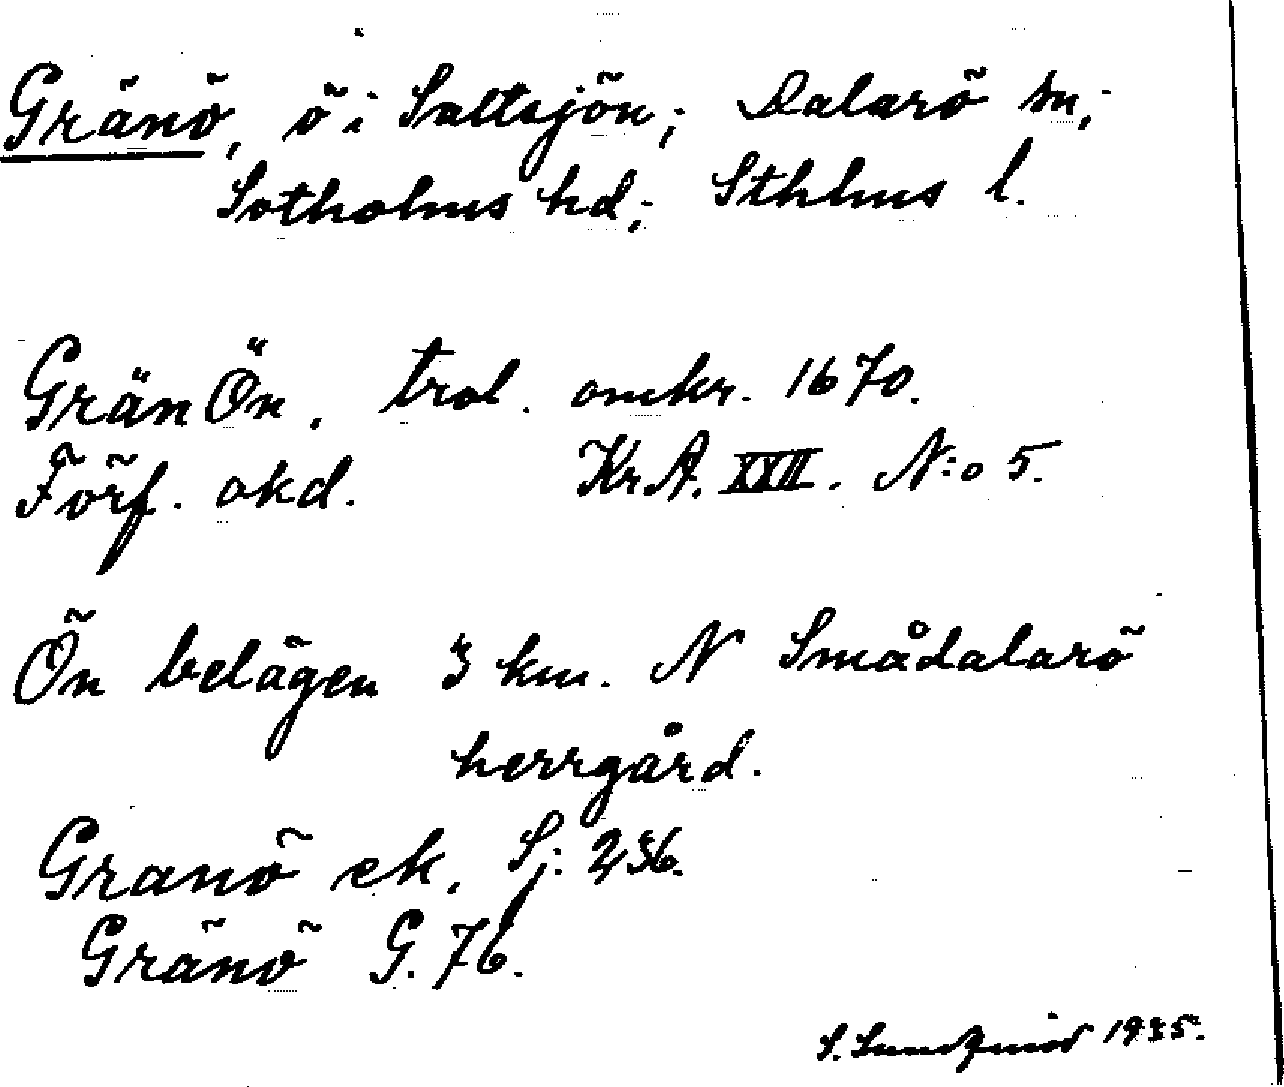 Gränö, ö i Saltsjön; Dalarö sn;
Sotholms hd; Sthlms l.
GränÖn. trol. omkr. 1670.
Förf. okd. Kr.A. XXII. N:o 5.
Ön belägen 3 km. N Smådalarö
herrgård.
Granö ek. S: 236.
Gränö G. 76.
S. Sundqvist 1935.